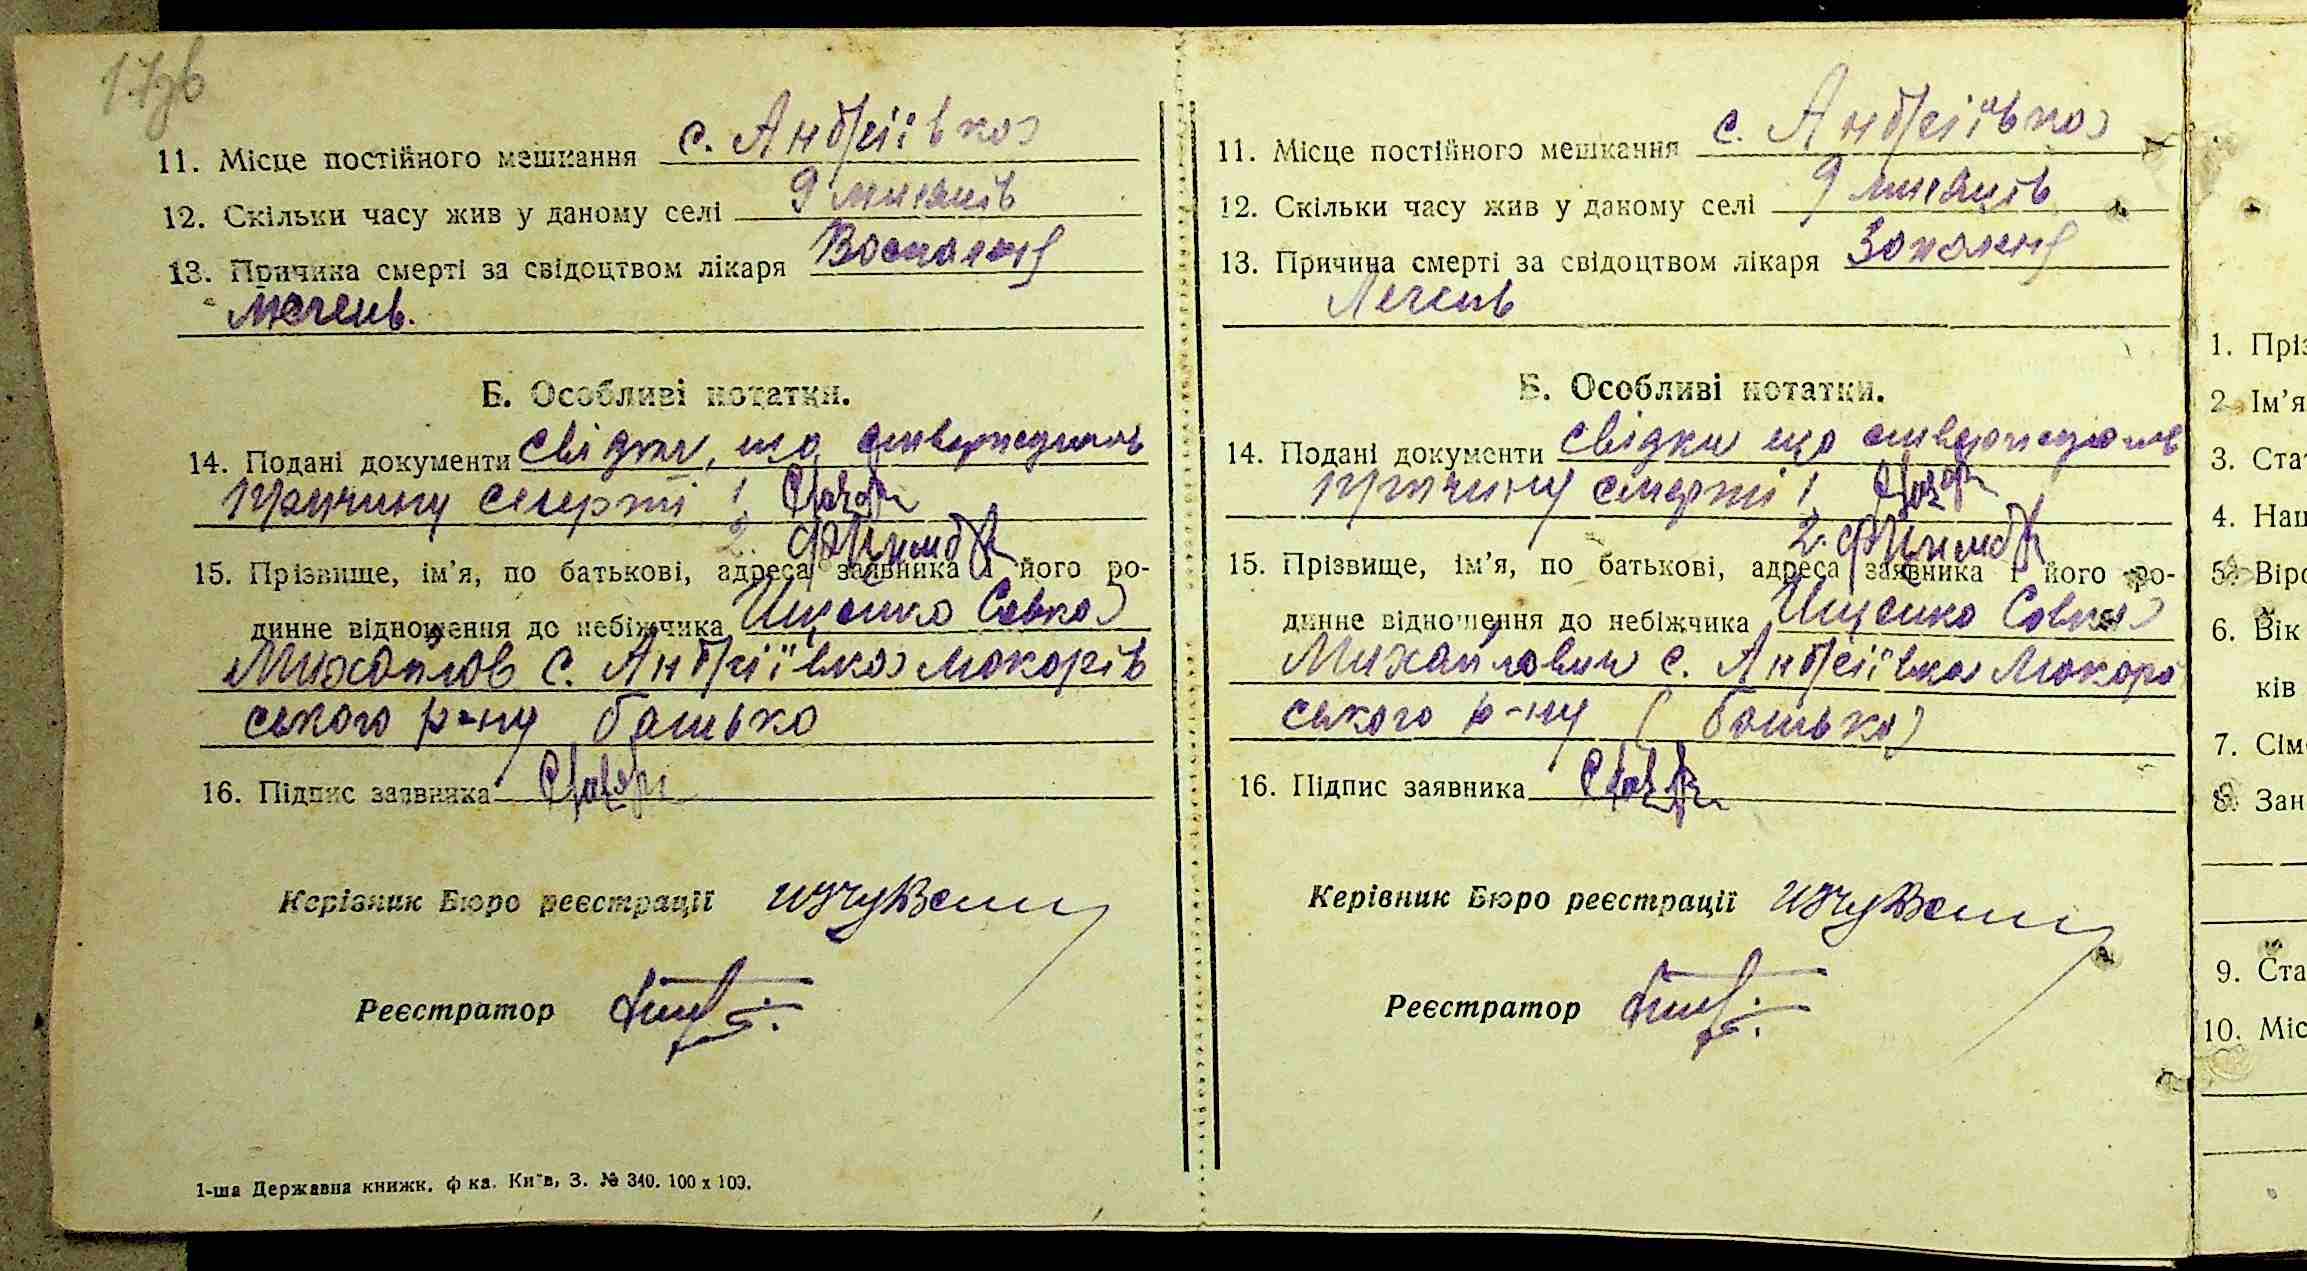 11. Місце постійного мешкання с. Андріївка
12. Скільки часу жив у даному селі 9 місяців
13. Причина смерті за свідоцтвом лікаря Воспалення
легень.
Б. Особливі нотатки.
14. Подані документи свідки, що стверджують
причину смерті 1
2.
15. Прізвище, ім'я, по батькові, адреса заявника і його ро-
динне відношення до небіжчика Іщенко Савка
Михайлов с. Андріївка Макарів
ського р-ну батько
16. Підпис заявника
Керівник Бюро реєстрації
Реєстратор
1-ша Державна книжк. ф ка. Київ, З. № 340. 100 х 100.
11. Місце постійного мешкання с. Андріївка
12. Скільки часу жив у даному селі 9 місяців
13. Причина смерті за свідоцтвом лікаря Запалення
Легень
Б. Особливі нотатки.
14. Подані документи свідки що стверджують
причину смерті 1
2.
15. Прізвище, ім'я, по батькові, адреса заявника і його ро-
динне відношення до небіжчика Іщенко Савка
Михайлович с. Андріївка Макарі
ського р-ну (батько)
16. Підпис заявника
Керівник Бюро реєстрації
Реєстратор
1. Пріз
2. Ім'я
3. Ста
4. Нац
5. Віро
6. Вік
ків
7. Сім
8. Зан
9. Ста
10. Міс